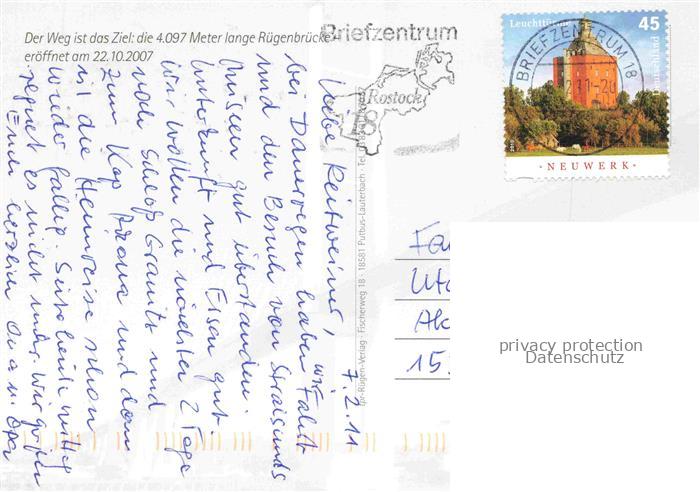 Der Weg ist das Ziel: die 4.097 Meter lange Rügenbrücke -
eröffnet am 22.10.2007
Briefzentrum
Rostock
18
Leuchttürme
45
Deutschland
BRIEFZENTRUM 18
NEUWERK
7.2.11
Liebe Reitweiner,
bei Dauerregen haben wir Fahrt
und den Besuch von Stralsund
Museen gut überstanden.
Unterkunft und Essen gut.
Wir wollen die nächsten 2 Tage
noch Schloß Granitz und
zum Kap Arkona und dann
ist die Heimreise schon
wieder fällig. Seit heute mittag
regnet es nicht mehr. Wir grüßen
Euch herzlich Oma u. Opa
rpr-Rügen-Verlag · Fischerweg 18 · 18581 Putbus-Lauterbach · Tel.
Fa
Ut
15
privacy protection
Datenschutz